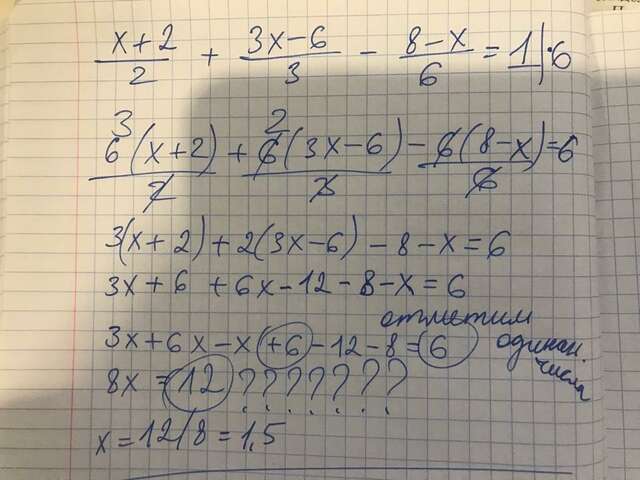 x+2/2 + 3x-6/3 - 8-x/6 = 1 |·6
3 2
6(x+2)/2 + 6(3x-6)/3 - 6(8-x)/6 = 6
3(x+2)+2(3x-6)-8-x=6
3x+6+6x-12-8-x=6
отметим одинак. числа
3x+6x-x+6-12-8=6
8x=12???????
x=12/8=1,5